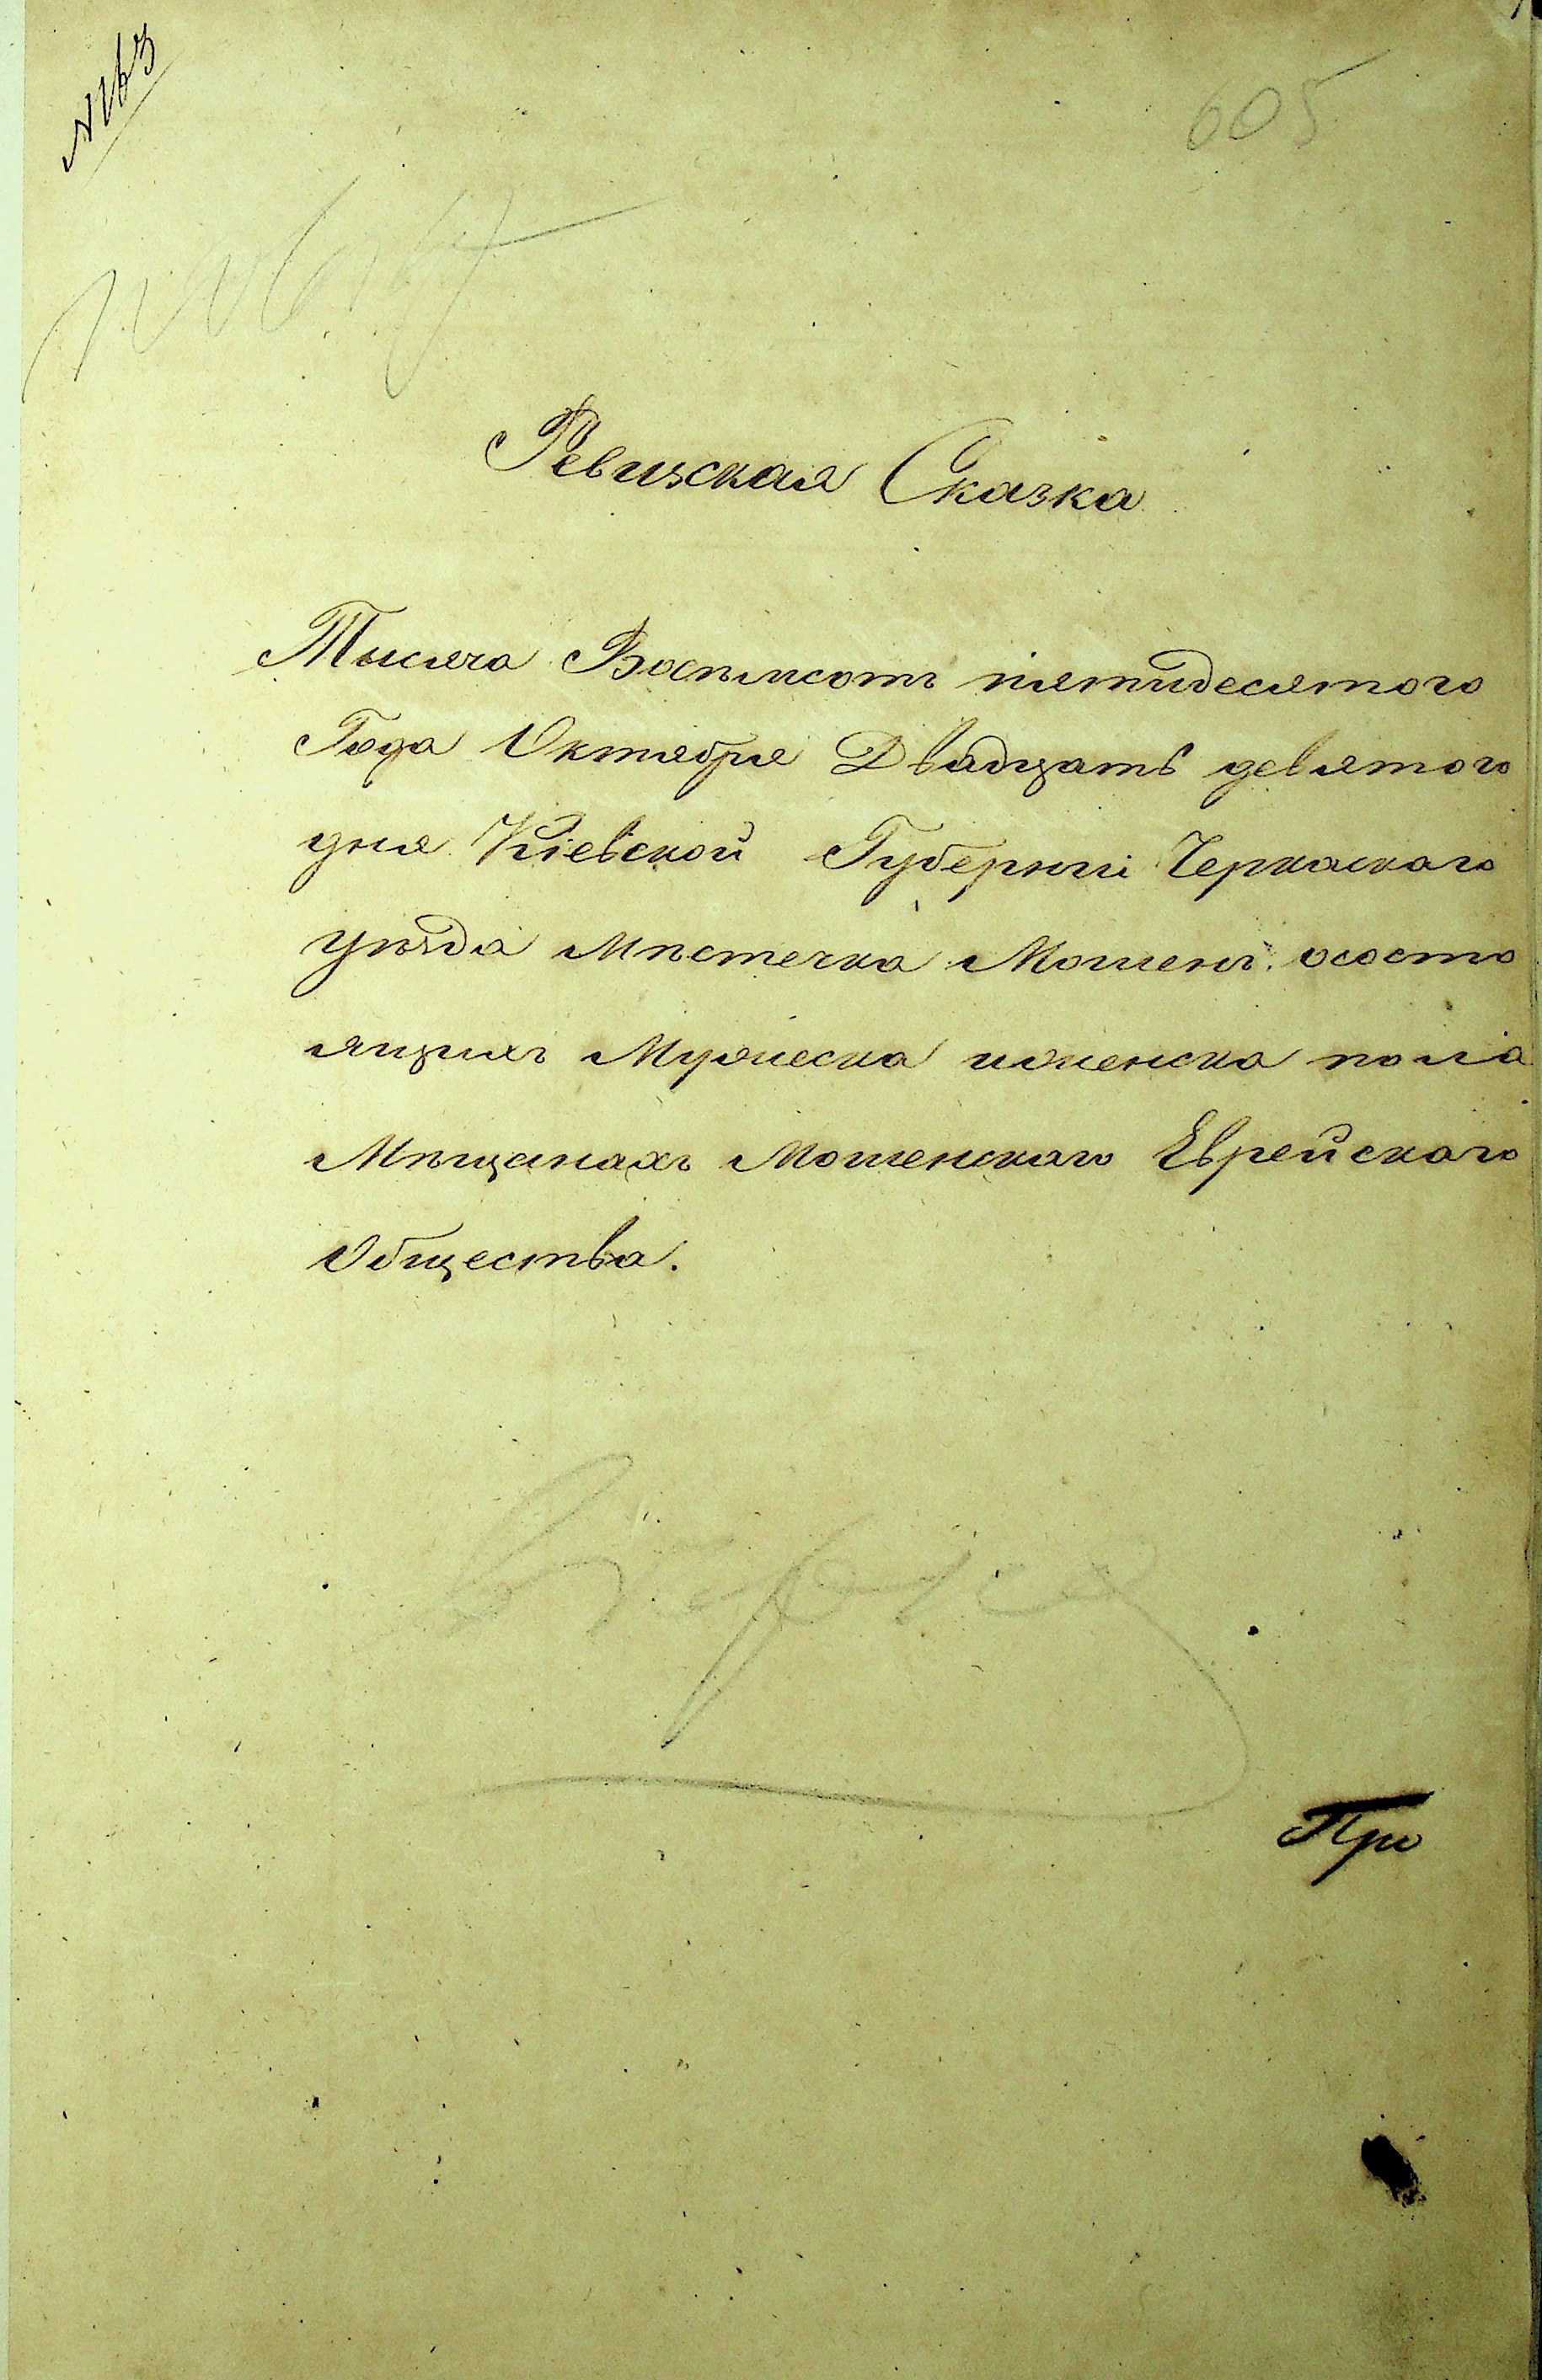 № 163
605
Ревизская Сказка
Тысяча Восѣмсотъ пятидесятого
Года Октября Двадцать девятого
дня Кіевской Губерніи Черкаскаго
уѣзда Мѣстечка Мошенъ ососто
ящихъ Мужеска иженска пола
Мѣщанахъ Мошенскаго Еврейскаго
Общества.
При